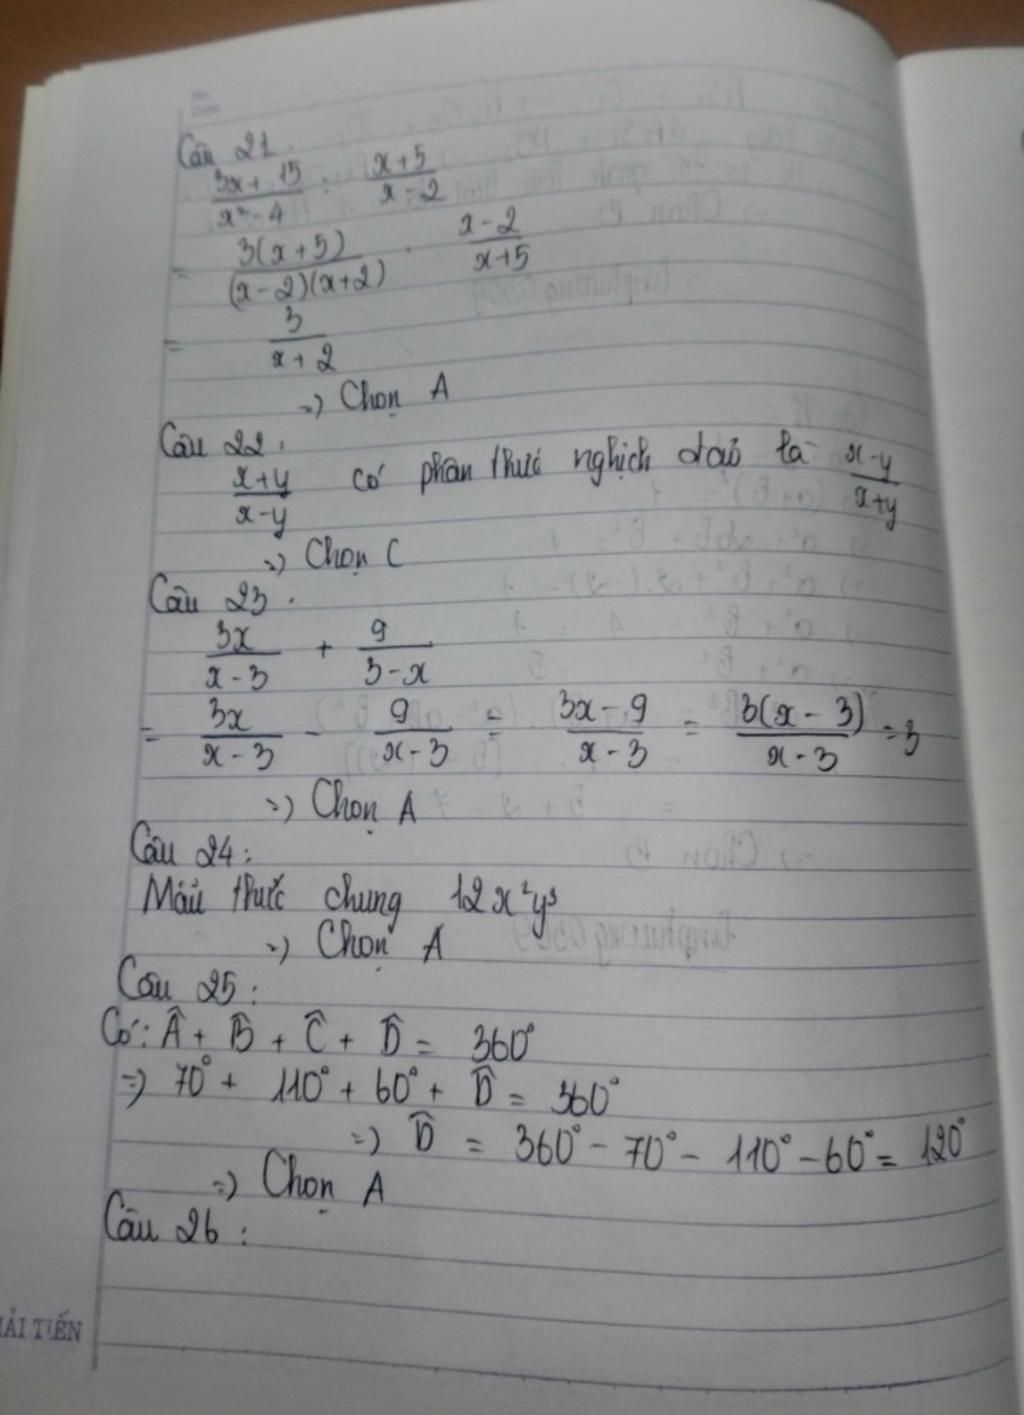 Câu 21.
3x+15/x²-4 : x+5/x-2
= 3(x+5)/(x-2)(x+2) . x-2/x+5
= 3/x+2
=> Chọn A
Câu 22.
x+y/x-y có phân thức nghịch đảo là x-y/x+y
=> Chọn C
Câu 23.
3x/x-3 + 9/3-x
= 3x/x-3 - 9/x-3 = 3x-9/x-3 = 3(x-3)/x-3 = 3
=> Chọn A
Câu 24:
Mẫu thức chung 12x²y³
=> Chọn A
Câu 25:
Có: Â + B̂ + Ĉ + D̂ = 360°
=> 70° + 110° + 60° + D̂ = 360°
=> D̂ = 360° - 70° - 110° - 60° = 120°
=> Chọn A
Câu 26:
ẢI TIẾN